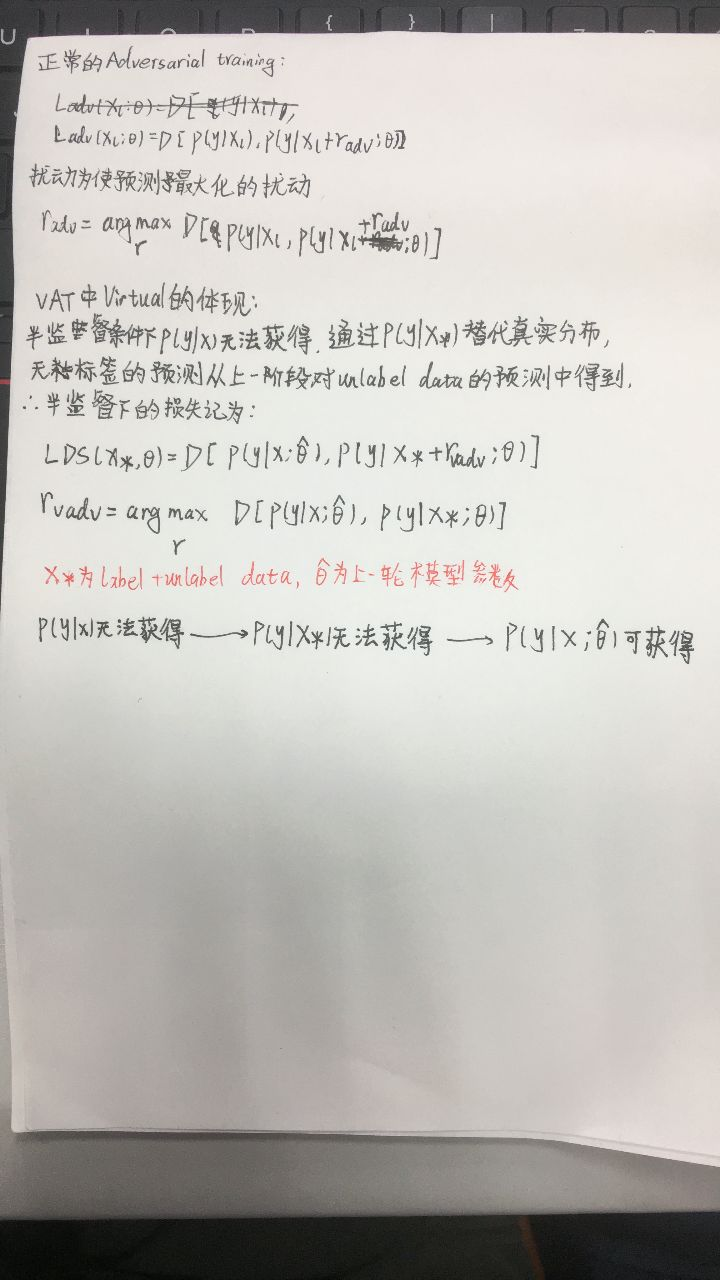 U I O P { } |
正常的Adversarial training:
Ladv(xl;θ)=D[p(y|xl),p(y|xl+radv;θ)]
扰动为使预测最大化的扰动
radv = arg max D[p(y|xl, p(y|xl+radv;θ)]
r
VAT中Virtual的体现:
半监督条件下p(y|x)无法获得,通过p(y|x*)替代真实分布,
无标签的预测从上一阶段对unlabel data的预测中得到,
∴半监督下的损失记为:
LDS(x*,θ)=D[p(y|x;θ̂),p(y|x*+rvadv;θ)]
rvadv = arg max D[p(y|x;θ̂),p(y|x*;θ)]
r
x*为label+unlabel data,θ̂为上一轮模型参数
p(y|x)无法获得→p(y|x*)无法获得→p(y|x;θ̂)可获得